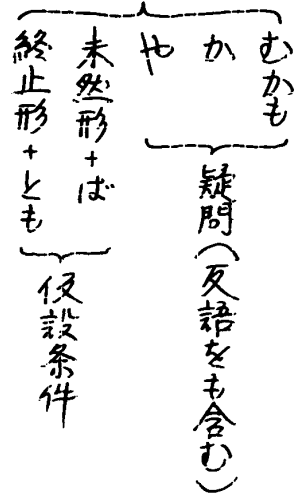 むかも
か
や
疑問(反語をも含む)
未然形+ば
終止形+とも
仮設条件